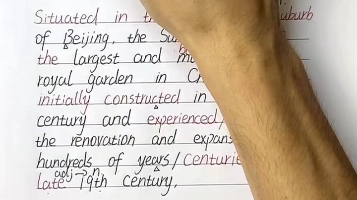 Situated in suburb
of Beijing, the
the largest and
royal garden in
initially constructed in
century and experienced/
the renovation and
hundreds of years/
adj→n.
late 19th century.